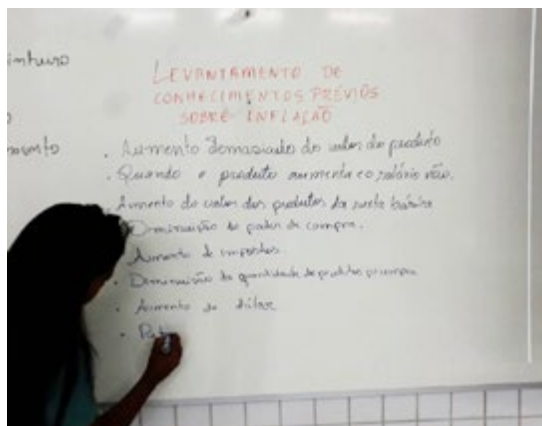 LEVANTAMENTO DE
CONHECIMENTOS PRÉVIOS
SOBRE INFLAÇÃO
. Aumento demasiado do valor do produto
. Quando o produto aumenta e o salário não.
. Aumento do valor dos produtos da cesta básica
Diminuição do poder de compra.
Aumento de impostos.
. Diminuição da quantidade de produtos
. Aumento do dólar